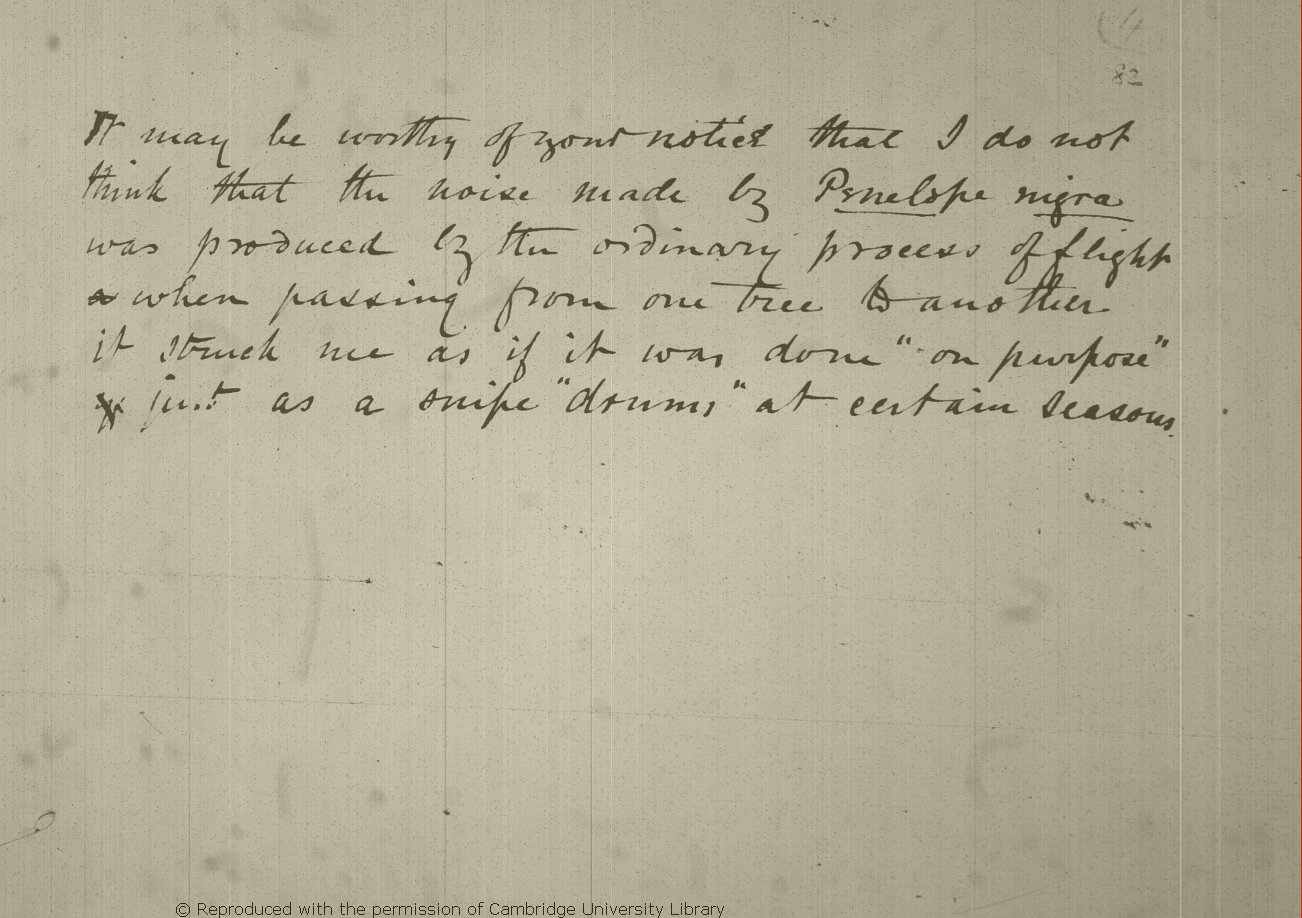 (4
82
It may be worthy of your notice that I do not
think that the noise made by Penelope nigra
was produced by the ordinary process of flight
when passing from one tree to another.
it struck me as if it was done "on purpose"
just as a snipe "drums" at certain seasons.
© Reproduced with the permission of Cambridge University Library